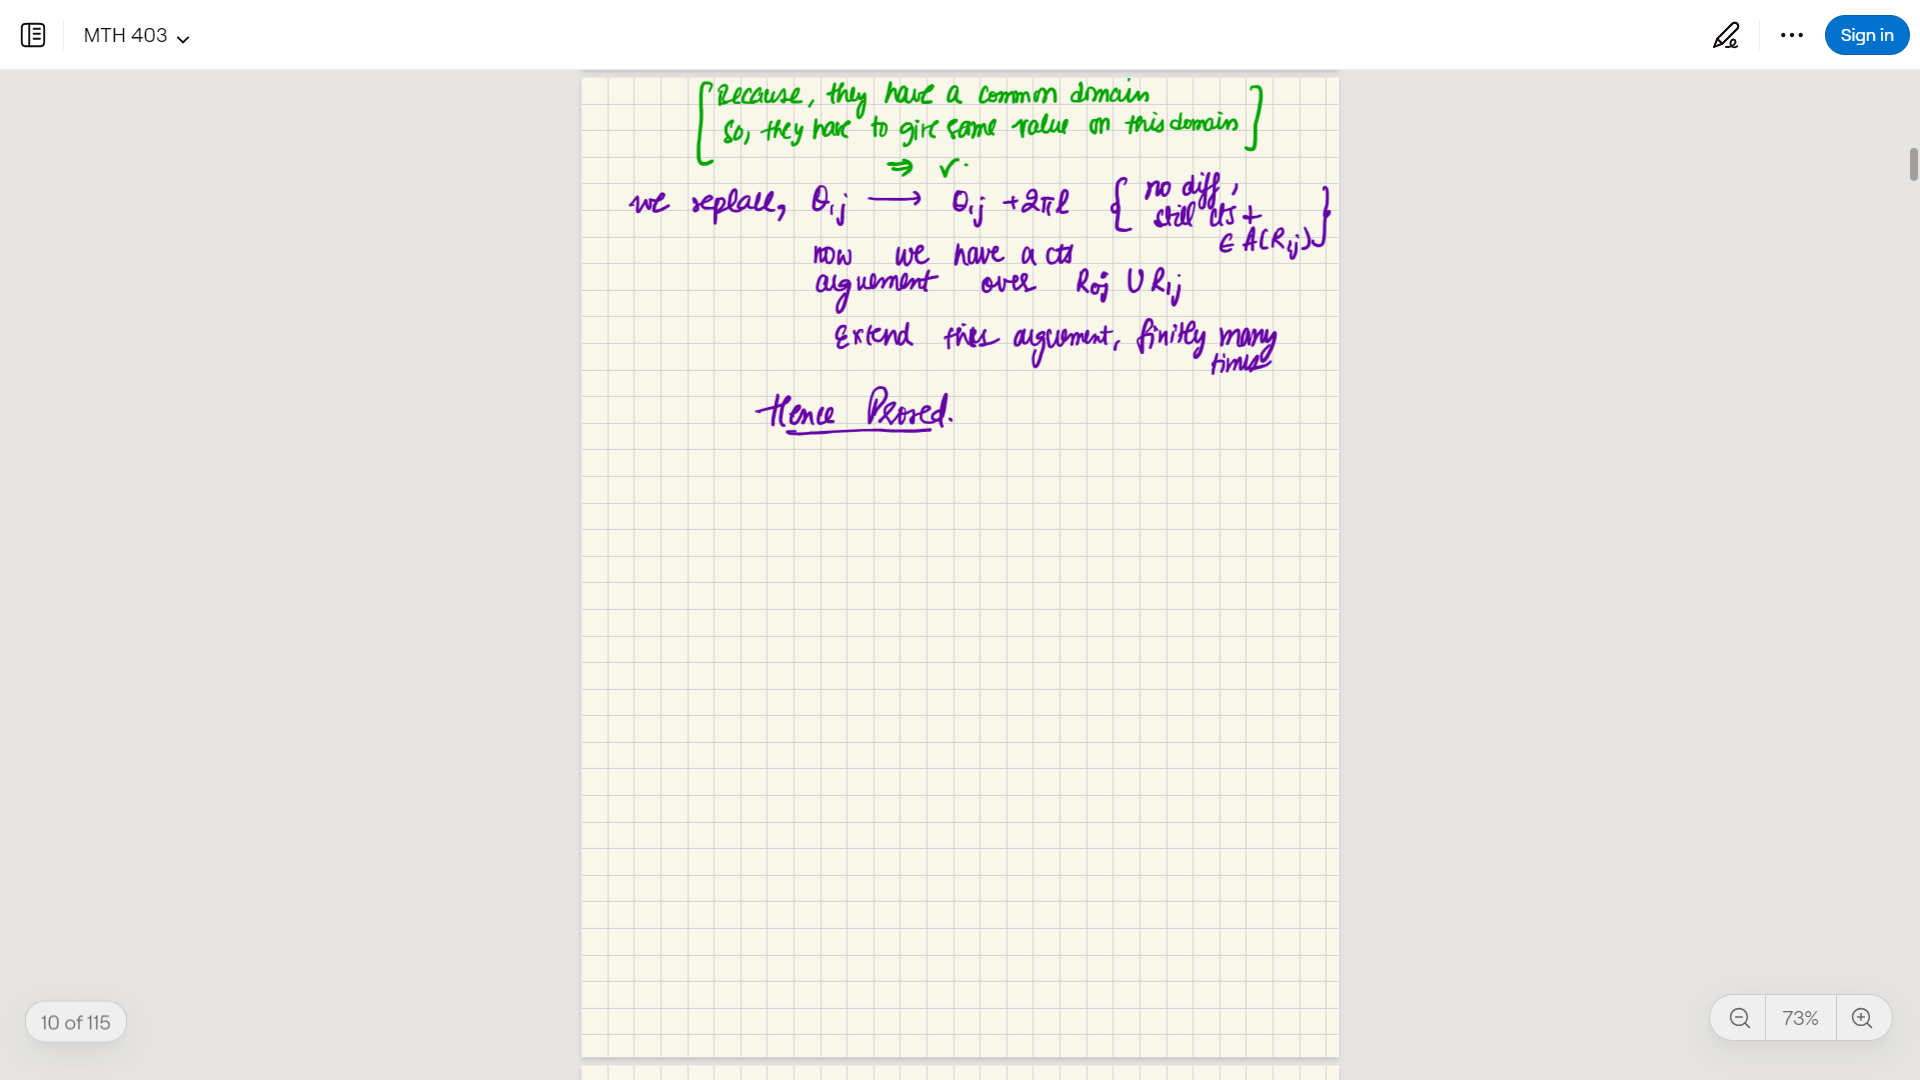 MTH 403
Sign in
[Because, they have a common domain
So, they have to give same value on this domain]
⇒ ✓.
we replace, θ₁ⱼ → θ₁ⱼ + 2πl { no diff,
still cts +
∈ A(R₁ⱼ) }
now we have a cts
arguement over R₀ⱼ ∪ R₁ⱼ
Extend this arguement, finitly many
times
Hence Proved.
10 of 115
73%